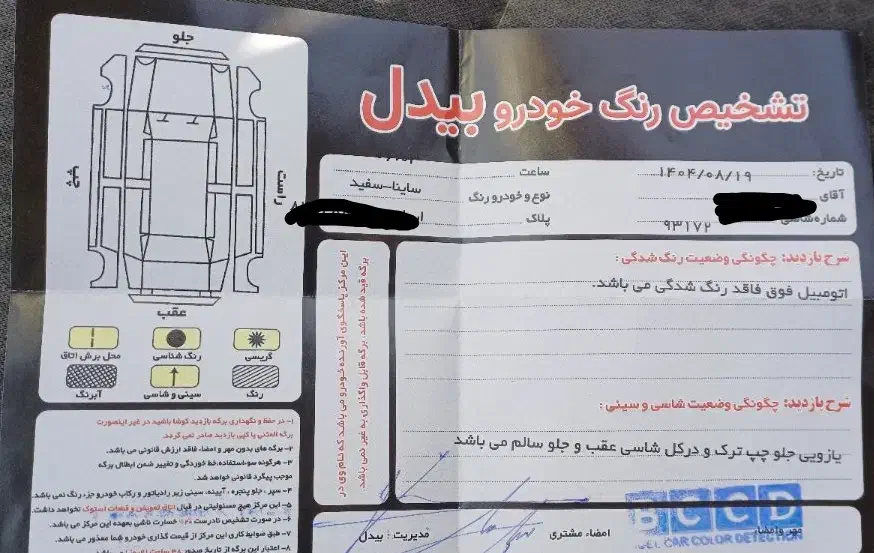 تشخیص رنگ خودرو بیدل
تاریخ: ۱۴۰۴/۰۸/۱۹
ساعت
آقای
نوع و خودرو رنگ
ساینا-سفید
شماره شاسی
۹۳۱۷۲
پلاک
شرح بازدید: چگونگی وضعیت رنگ شدگی:
اتومبیل فوق فاقد رنگ شدگی می باشد.
شرح بازدید: چگونگی وضعیت شاسی و سینی:
یازویی جلو چپ ترک و درکل شاسی عقب و جلو سالم می باشد
مهر و امضاء
امضاء مشتری
مدیریت: بیدل
BCCD
CAR COLOR DETECTION
این مرکز پاسخگوی آورنده خودرو می باشد که نام وی در
برگه قید شده باشد. برگه قابل واگذاری به غیر نمی باشد.
جلو
چپ
راست
عقب
گریسی
رنگ شناسی
محل برش اتاق
رنگ
سینی و شاسی
آبرنگ
۱- در حفظ و نگهداری برگه بازدید کوشا باشید در غیر اینصورت
برگه المثنی یا کپی بازدید صادر نمی گردد.
۲- برگه های بدون مهر و امضاء، فاقد ارزش قانونی می باشد.
۳- هرگونه سوءاستفاده، خط خوردگی و تغییر ضمن ابطال برگه
موجب پیگرد قانونی خواهد شد.
۴- سپر، جلو پنجره، آیینه، سینی زیر رادیاتور و رکاب خودرو جزء رنگ نمی باشد.
۵- این مرکز هیچ مسئولیتی در قبال اتاق تعویض و قطعات استوک نخواهد داشت.
۶- در صورت تشخیص نادرست خسارت ناشی بعهده این مرکز می باشد.
۷- طبق ضوابط کاری این مرکز از قیمت گذاری خودرو شما معذور می باشد.
۸- اعتبار این برگه از تاریخ صدور